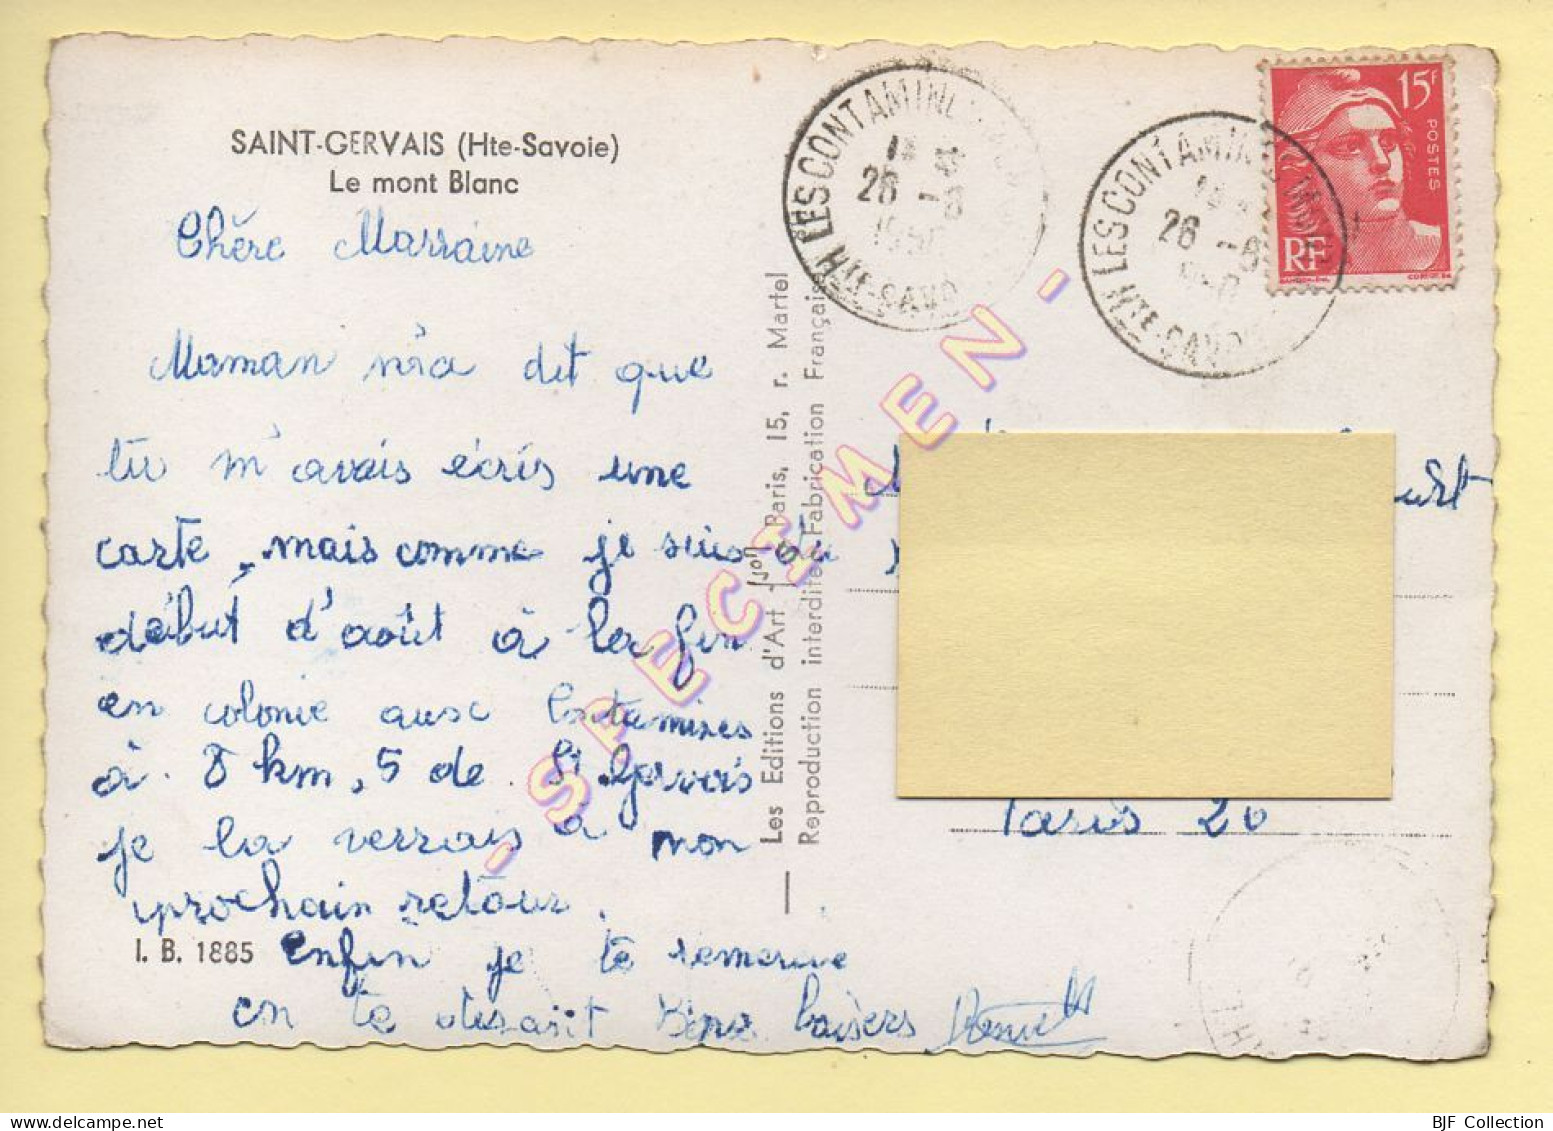 SAINT-GERVAIS (Hte-Savoie)
Le mont Blanc
Chère Marraine
Maman m'a dit que
tu m'avais écris une
carte, mais comme je suis du
début d'août à la fin
en colonie aux Contamines
à 8 km, 5 de St Gervais
je la verrais à mon
prochain retour.
I. B. 1885
enfin je te remercie
en te disant bons baisers
Les Editions d'Art Paris, 15, r. Martel
Reproduction interdite Fabrication Française
- SPECIMEN -
LES CONTAMINE
26 -8
HTE-SAVO
LES CONTAMIN
26 -8
HTE-SAVO
15F
POSTES
RF
Paris 20
BJF Collection